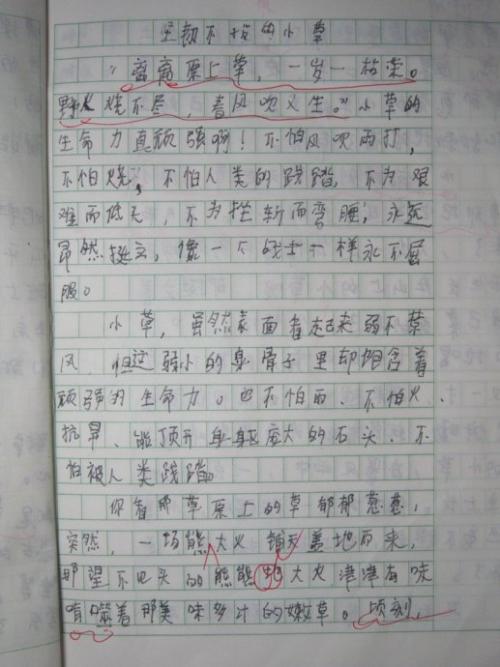 坚韧不拔的小草
"离离原上草，一岁一枯荣。
野火烧不尽，春风吹又生。"小草的
生命力真顽强啊！不怕风吹雨打，
不怕烧，不怕人类的践踏，不为艰
难而低头，不为挫折而弯腰，永远
昂然挺立，像一个战士一样永不屈
服。
小草，虽然表面看起来弱不禁
风，但这弱小的身骨子里却饱含着
顽强的生命力。也不怕雨、不怕火、
抗旱、能顶开身躯庞大的石头、不
怕被人类践踏。
你看那草原上的草郁郁葱葱，
突然，一场熊大火铺天盖地而来，
那望不见头的熊熊大火津津有味
啃噬着那美味多汁的嫩草。顷刻，